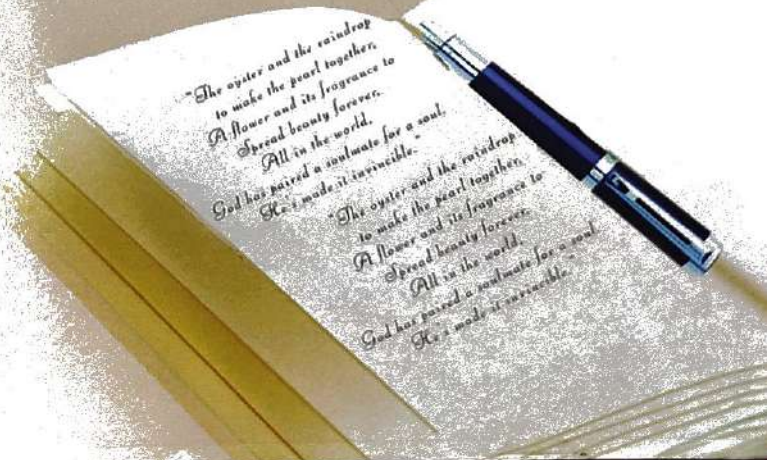 "The oyster and the raindrop
to make the pearl together,
A flower and its fragrance to
Spread beauty forever,
All in the world,
God has paired a soulmate for a soul,
He's made it invincible."
"The oyster and the raindrop
to make the pearl together,
A flower and its fragrance to
Spread beauty forever,
All in the world,
God has paired a soulmate for a soul
He's made it invincible."